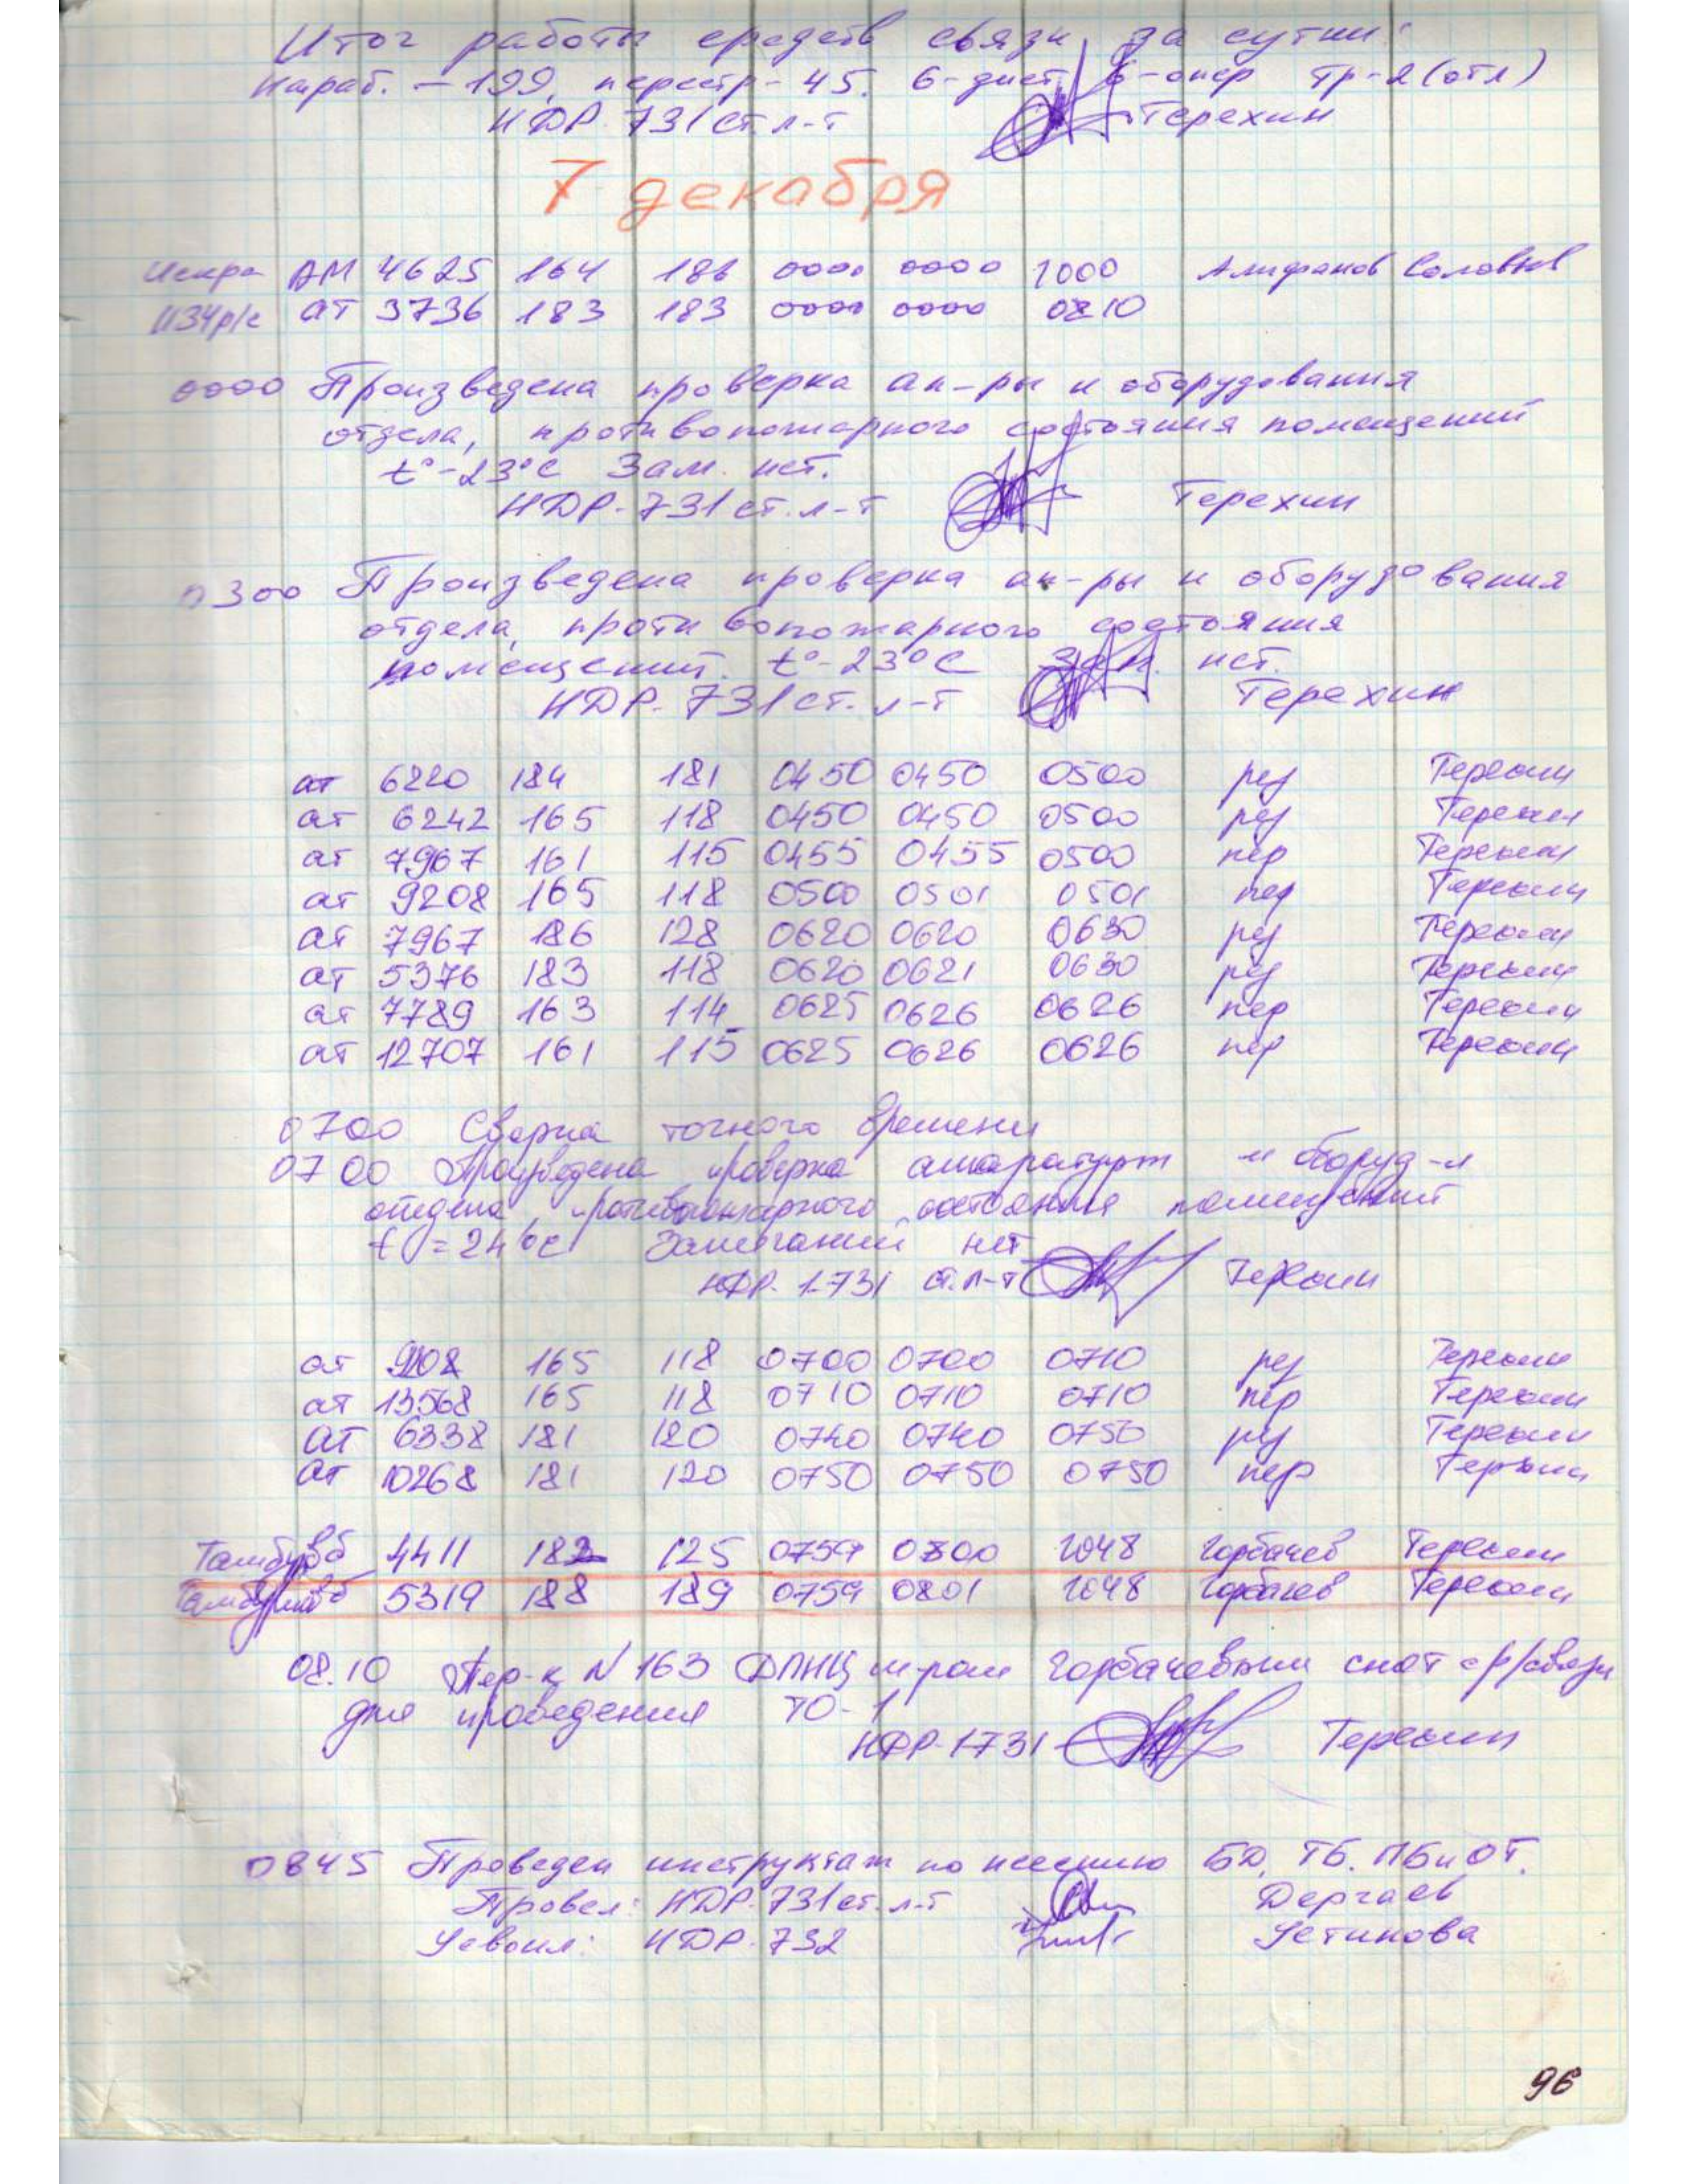 Итог работы средств связи за сутки:
Нараб. – 199, перестр – 45. 6-дист 6-опер Тр-2 (отл)
НДР 731 ст л-т Терехин
7 декабря
Искра АМ 4625 164 186 0000 0000 1000 Алифанов Соловьев
АТ 3736 183 183 0000 0000 0810
0000 Произведена проверка ап-ры и оборудования
отдела, противопожарного состояния помещений
t°-23°С Зам. нет.
НДР-731 ст. л-т Терехин
0300 Произведена проверка ап-ры и оборудования
отдела, противопожарного состояния
помещений. t°-23°С Зам. нет.
НДР-731 ст. л-т Терехин
ат 6220 184 181 0450 0450 0500 рез Терехин
ат 6242 165 118 0450 0450 0500 рез Терехин
ат 7967 161 115 0455 0455 0500 пер Терехин
ат 9208 165 118 0500 0501 0501 пер Терехин
ат 7967 186 128 0620 0620 0630 рез Терехин
ат 5376 183 118 0620 0621 0630 рез Терехин
ат 7789 163 114 0625 0626 0626 пер Терехин
ат 12707 161 115 0625 0626 0626 пер Терехин
0700 Сверка точного времени
0700 Произведена проверка аппаратуры и оборуд-я
отдела, противопожарного состояния помещений
t = 24°С Замечаний нет
НДР. 1-731 ст. л-т Терехин
ат 9208 165 118 0700 0700 0710 рез Терехин
ат 13568 165 118 0710 0710 0710 пер Терехин
АТ 6338 181 120 0740 0740 0750 рез Терехин
ат 10268 181 120 0750 0750 0750 пер Терехин
4411 182 125 0759 0800 1048 Горбачев Терехин
5319 188 189 0759 0801 1048 Горбачев Терехин
08.10 Пер-к N 163 Горбачевым снят с р/связи
для проведения ТО-1
НДР-1731 Терехин
0845 Проведен инструктаж по несению БД, ТБ. ПБ и ОТ.
Провел: НДР-731 ст. л-т Дергаев
Усвоил: НДР-732 Устинова
96